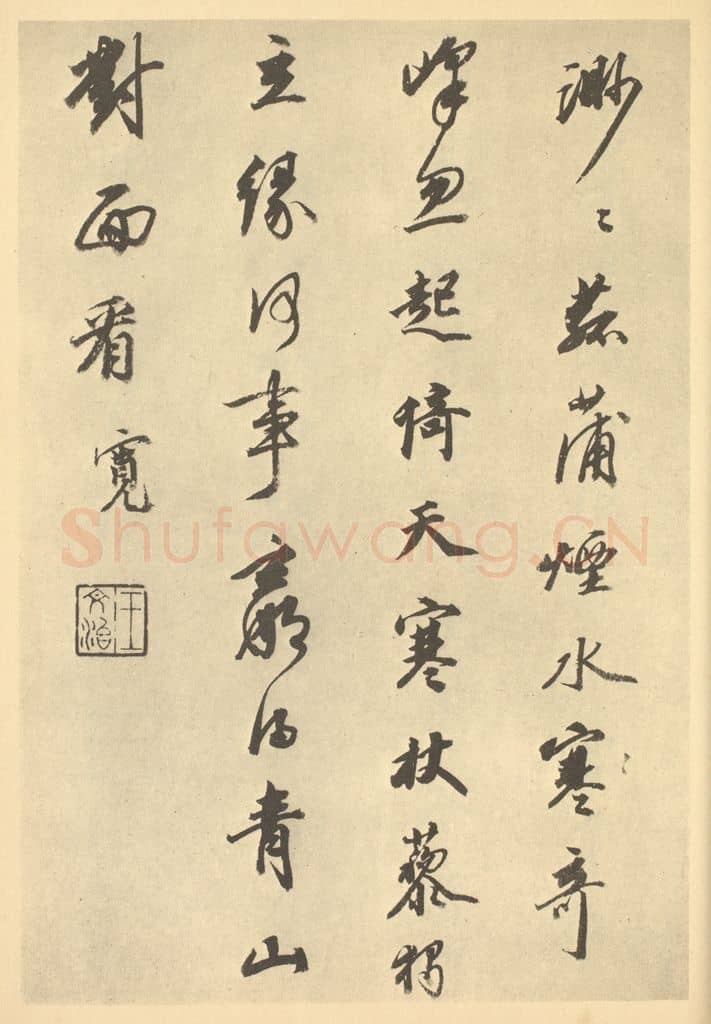 渺〻菰蒲煙水寒奇
峰忽起倚天寒杖藜獨
立緣何事贏得青山
對面看 寬
王文治
Shufawang.CN